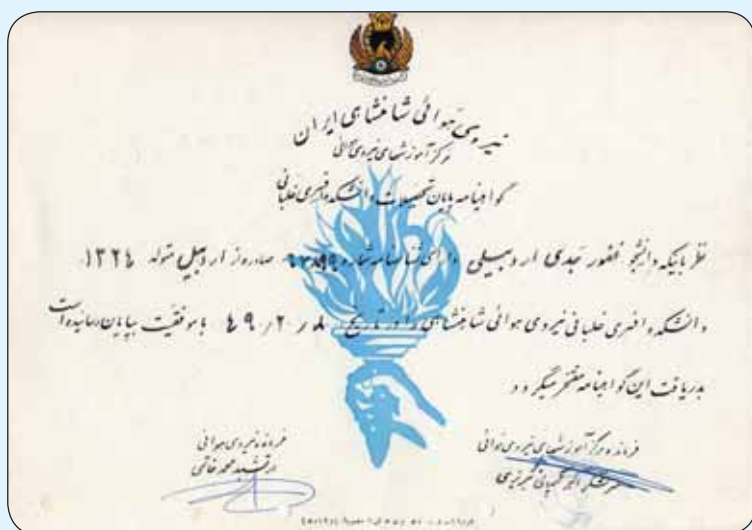 نیروی هوائی شاهنشاهی ایران
مرکز آموزشهای نیروی هوائی
گواهینامه پایان تحصیلات دانشکده افسری خلبانی
نظر باینکه دانشجو غفور جدی اردبیلی دارای شناسنامه شماره صادره از اردبیل متولد ۱۳۲۴
دانشکده افسری خلبانی نیروی هوائی شاهنشاهی را در تاریخ ۴۹٫۲٫۸ با موفقیت بپایان رسانیده است
بدریافت این گواهینامه مفتخر میگردد
فرمانده مرکز آموزشهای نیروی هوائی
سرلشگر
فرمانده نیروی هوائی
ارتشبد محمد خاتمی